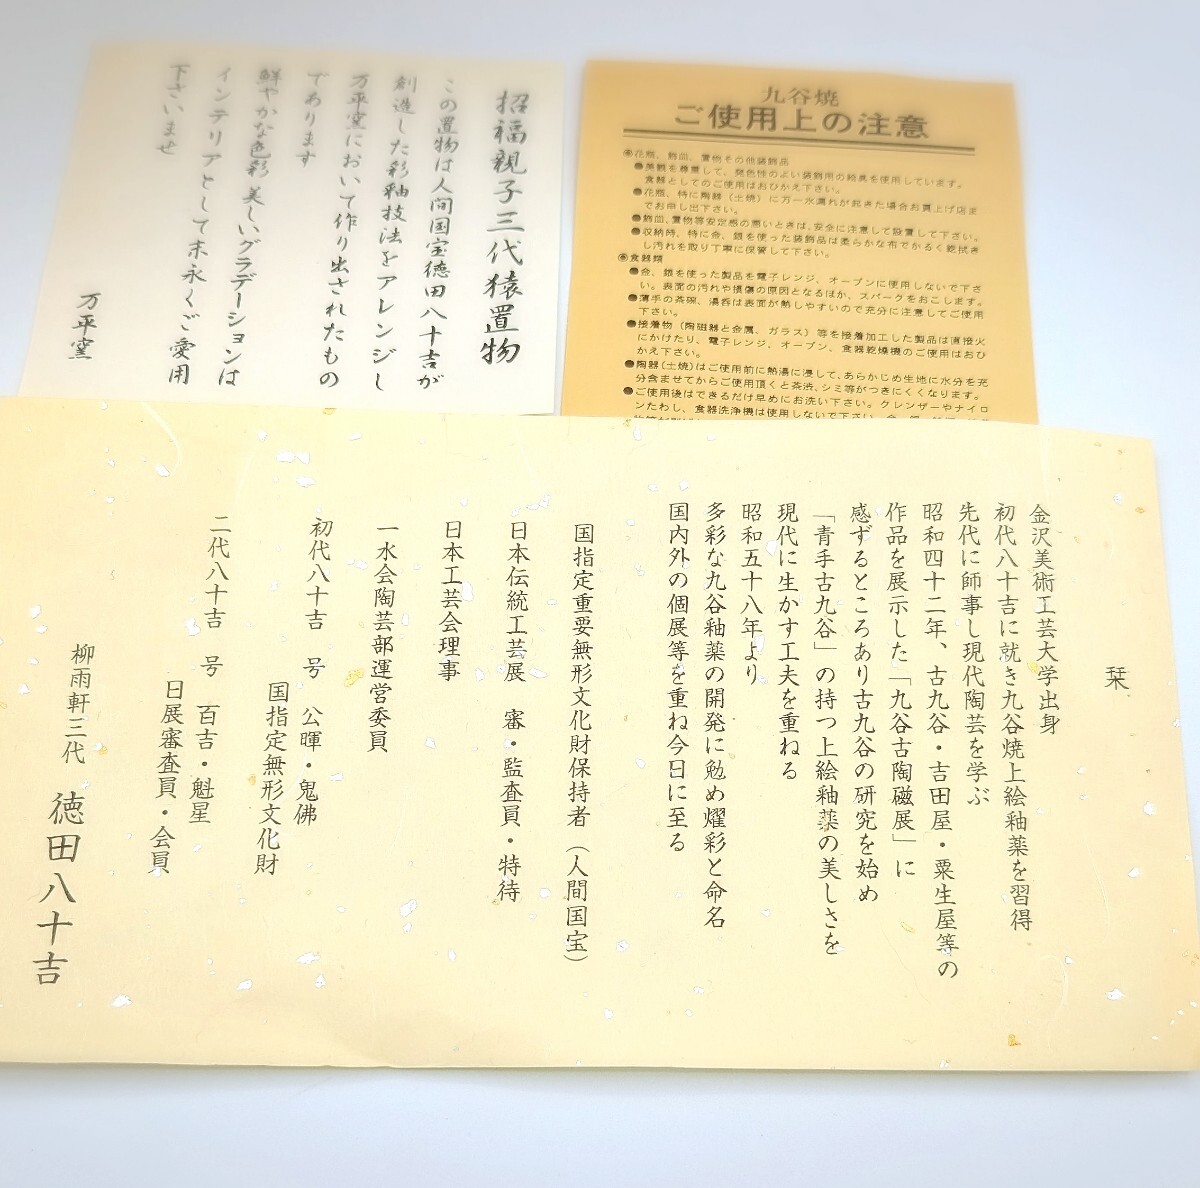 招福親子三代猿置物
この置物は人間国宝徳田八十吉が
創造した彩釉技法をアレンジし
万平窯において作り出されたもの
であります
鮮やかな色彩 美しいグラデーションは
インテリアとして末永くご愛用
下さいませ
万平窯
九谷焼
ご使用上の注意
花瓶、飾皿、置物その他装飾品
●美観を尊重して、発色性のよい装飾用の絵具を使用しています。
食器としてのご使用はおひかえ下さい。
●花瓶、特に陶器(土焼)に万一水漏れが起きた場合お買上げ店ま
でお申し出下さい。
●飾皿、置物等安定感の悪いときは、安全に注意して設置して下さい。
●収納時、特に金、銀を使った装飾品は柔らかな布でかるく乾拭き
し汚れを取り丁寧に保管して下さい。
食器類
●金、銀を使った製品を電子レンジ、オーブンに使用しないで下さ
い。表面の汚れや損傷の原因となるほか、スパークをおこします。
●薄手の茶碗、湯呑は表面が熱しやすいので充分に注意してご使用
下さい。
●接着物(陶磁器と金属、ガラス)等を接着加工した製品は直接火
にかけたり、電子レンジ、オーブン、食器乾燥機のご使用はおひ
かえ下さい。
●陶器(土焼)はご使用前に熱湯に浸して、あらかじめ生地に水分を充
分含ませてからご使用頂くと茶渋、シミ等がつきにくくなります。
●ご使用後はできるだけ早めにお洗い下さい。クレンザーやナイロ
ンたわし、食器洗浄機は使用しないで下さい。
栞
金沢美術工芸大学出身
初代八十吉に就き九谷焼上絵釉薬を習得
先代に師事し現代陶芸を学ぶ
昭和四十二年、古九谷・吉田屋・粟生屋等の
作品を展示した「九谷古陶磁展」に
感ずるところあり古九谷の研究を始め
「青手古九谷」の持つ上絵釉薬の美しさを
現代に生かす工夫を重ねる
昭和五十八年より
多彩な九谷釉薬の開発に勉め燿彩と命名
国内外の個展等を重ね今日に至る
国指定重要無形文化財保持者(人間国宝)
日本伝統工芸展 審・監査員・特待
日本工芸会理事
一水会陶芸部運営委員
初代八十吉 号 公暉・鬼佛
国指定無形文化財
二代八十吉 号 百吉・魁星
日展審査員・会員
柳雨軒三代 徳田八十吉